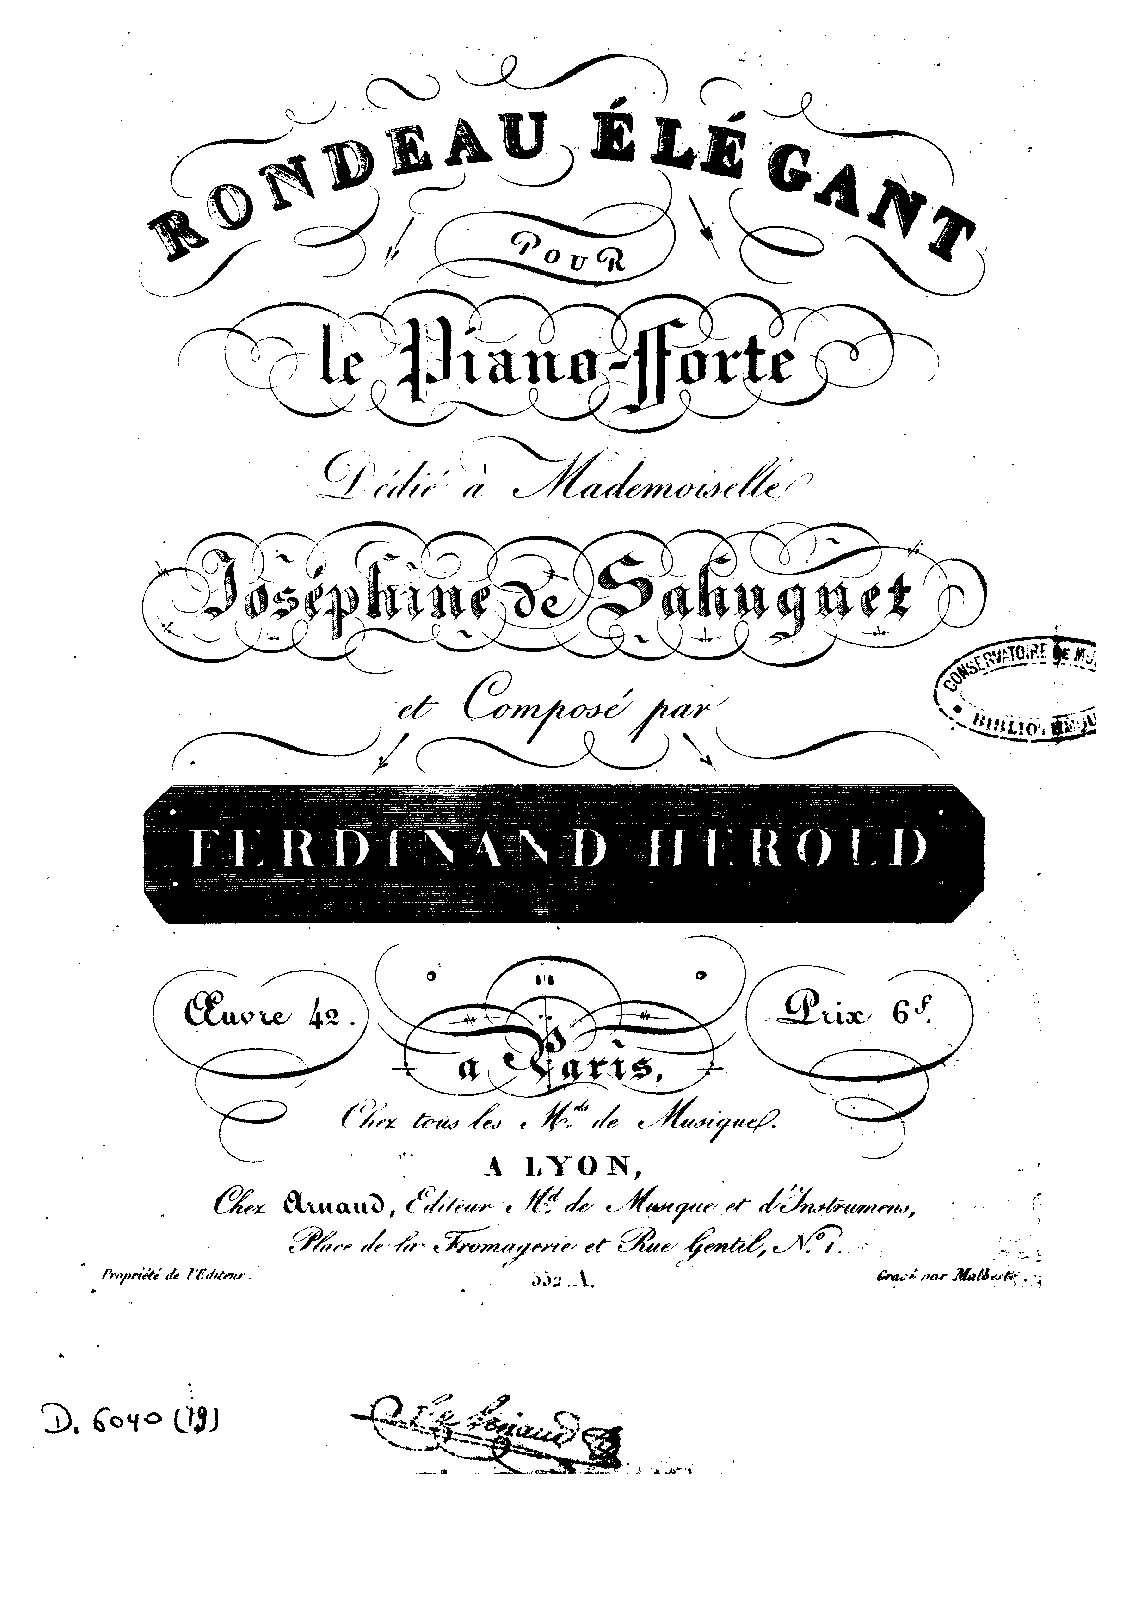 RONDEAU ÉLÉGANT
POUR
le Piano-Forte
Dédié à Mademoiselle
Joséphine de Sahuguet
et Composé par
CONSERVATOIRE DE
BIBLIOTHÈQUE
FERDINAND HEROLD
Œuvre 42.
Prix 6f.
a Paris,
Chez tous les Mds. de Musique.
A LYON,
Chez Arnaud, Editeur Md. de Musique et d'Instrumens,
Place de la Fromagerie et Rue Gentil, No. 1.
Propriété de l'Editeur.
552. A.
Gravé par
D. 6040 (19)